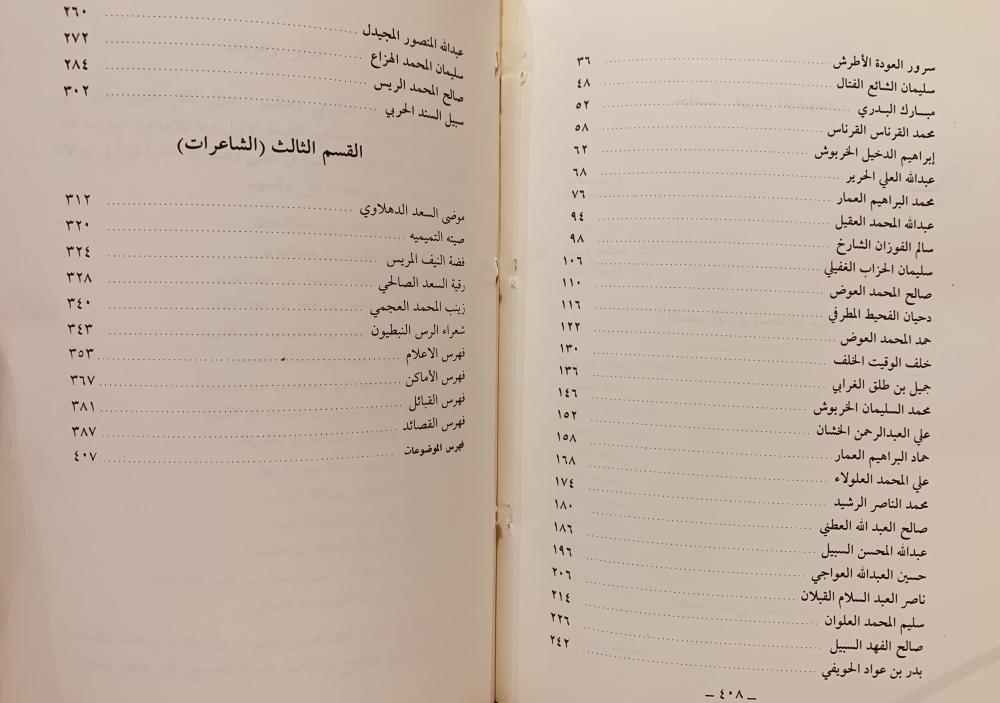 سرور العودة الأطرش ........ ٣٦
سليمان الشائع الفتال ........ ٤٨
مبــارك البــدري ........ ٥٢
محمد القرناس القرناس ........ ٥٨
إبراهيم الدخيل الخربوش ........ ٦٢
عبدالله العلي الحرير ........ ٦٨
محمد البراهيم العمار ........ ٧٦
عبدالله المحمد العقيل ........ ٩٤
سالم الفوزان الشارخ ........ ٩٨
سليمان الحزاب الغفيلي ........ ١٠٦
صالح المحمد العوض ........ ١١٠
دحيان الفحيط المطرفي ........ ١١٦
حمد المحمد العوض ........ ١٢٢
خلف الوقيت الخلف ........ ١٣٠
جميل بن طلق الغرابي ........ ١٣٦
محمد السليمان الخربوش ........ ١٤٦
علي العبدالرحمن الخشان ........ ١٥٢
حماد البراهيم العمار ........ ١٥٨
علي المحمد العلولاء ........ ١٦٨
محمد الناصر الرشيد ........ ١٧٤
صالح العبد الله العطني ........ ١٨٠
عبدالله المحسن السبيل ........ ١٨٦
حسين العبدالله العواجي ........ ١٩٦
ناصر العبد السلام القبلان ........ ٢٠٦
سليم المحمد العلوان ........ ٢١٤
صالح الفهد السبيل ........ ٢٢٦
بدر بن عواد الحويفي ........ ٢٤٢
– ٤٠٨ –
عبدالله المنصور المجيدل ........ ٢٦٠
سليمان المحمد الهزاع ........ ٢٧٢
صالح المحمد الريس ........ ٢٨٤
سبيل السند الحربي ........ ٣٠٢
القسم الثالث (الشاعرات)
موضى السعد الدهلاوي ........ ٣١٢
صيته التميميه ........ ٣٢٠
فضة النيف المريس ........ ٣٢٤
رقية السعد الصالحي ........ ٣٢٨
زينب المحمد العجمي ........ ٣٤٠
شعراء الرس النبطيون ........ ٣٤٣
فهرس الاعلام ........ ٣٥٣
فهرس الأماكن ........ ٣٦٧
فهرس القبائل ........ ٣٨١
فهرس القصائد ........ ٣٨٧
فهرس الموضوعات ........ ٤٠٧